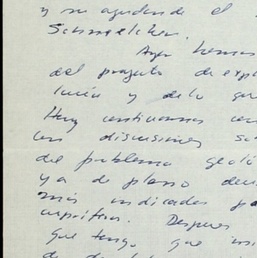 y su ayudande el
Schmelcher.
Ayer hemos
del proyecto de expl
lucín y de lo que
Hoy continuamos con
las discusiones so
del problema geoló
ya de plano deci
más indicados pa
Después
que tengo que ini